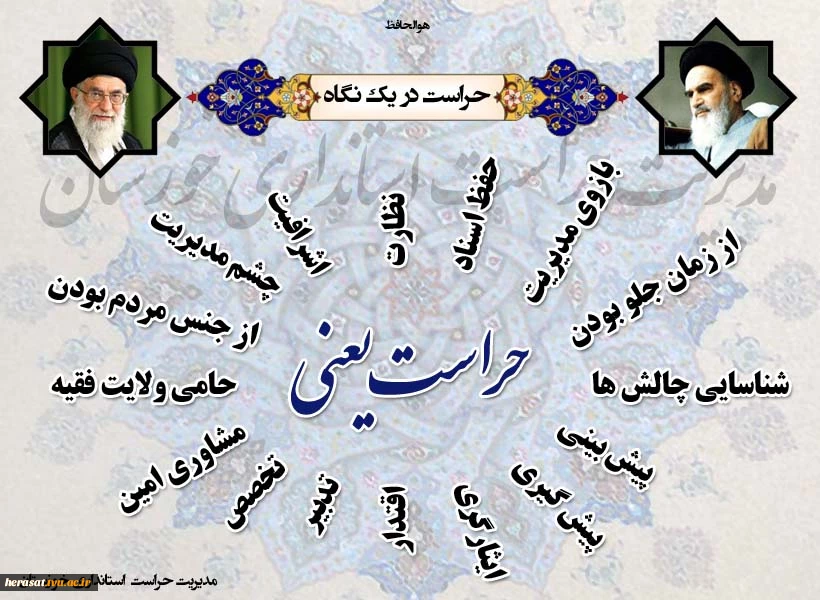 هوالحافظ
حراست در یک نگاه
مدیریت حراست استانداری خوزستان
بازوی مدیریت
حفظ اسناد
نظارت
اشرافیت
چشم مدیریت
از زمان جلو بودن
از جنس مردم بودن
حراست یعنی
شناسایی چالش ها
حامی ولایت فقیه
پیش بینی
مشاوری امین
پیش گیری
تخصص
ایثارگری
اقتدار
تدبیر
مدیریت حراست استانداری
herasat.iyu.ac.ir